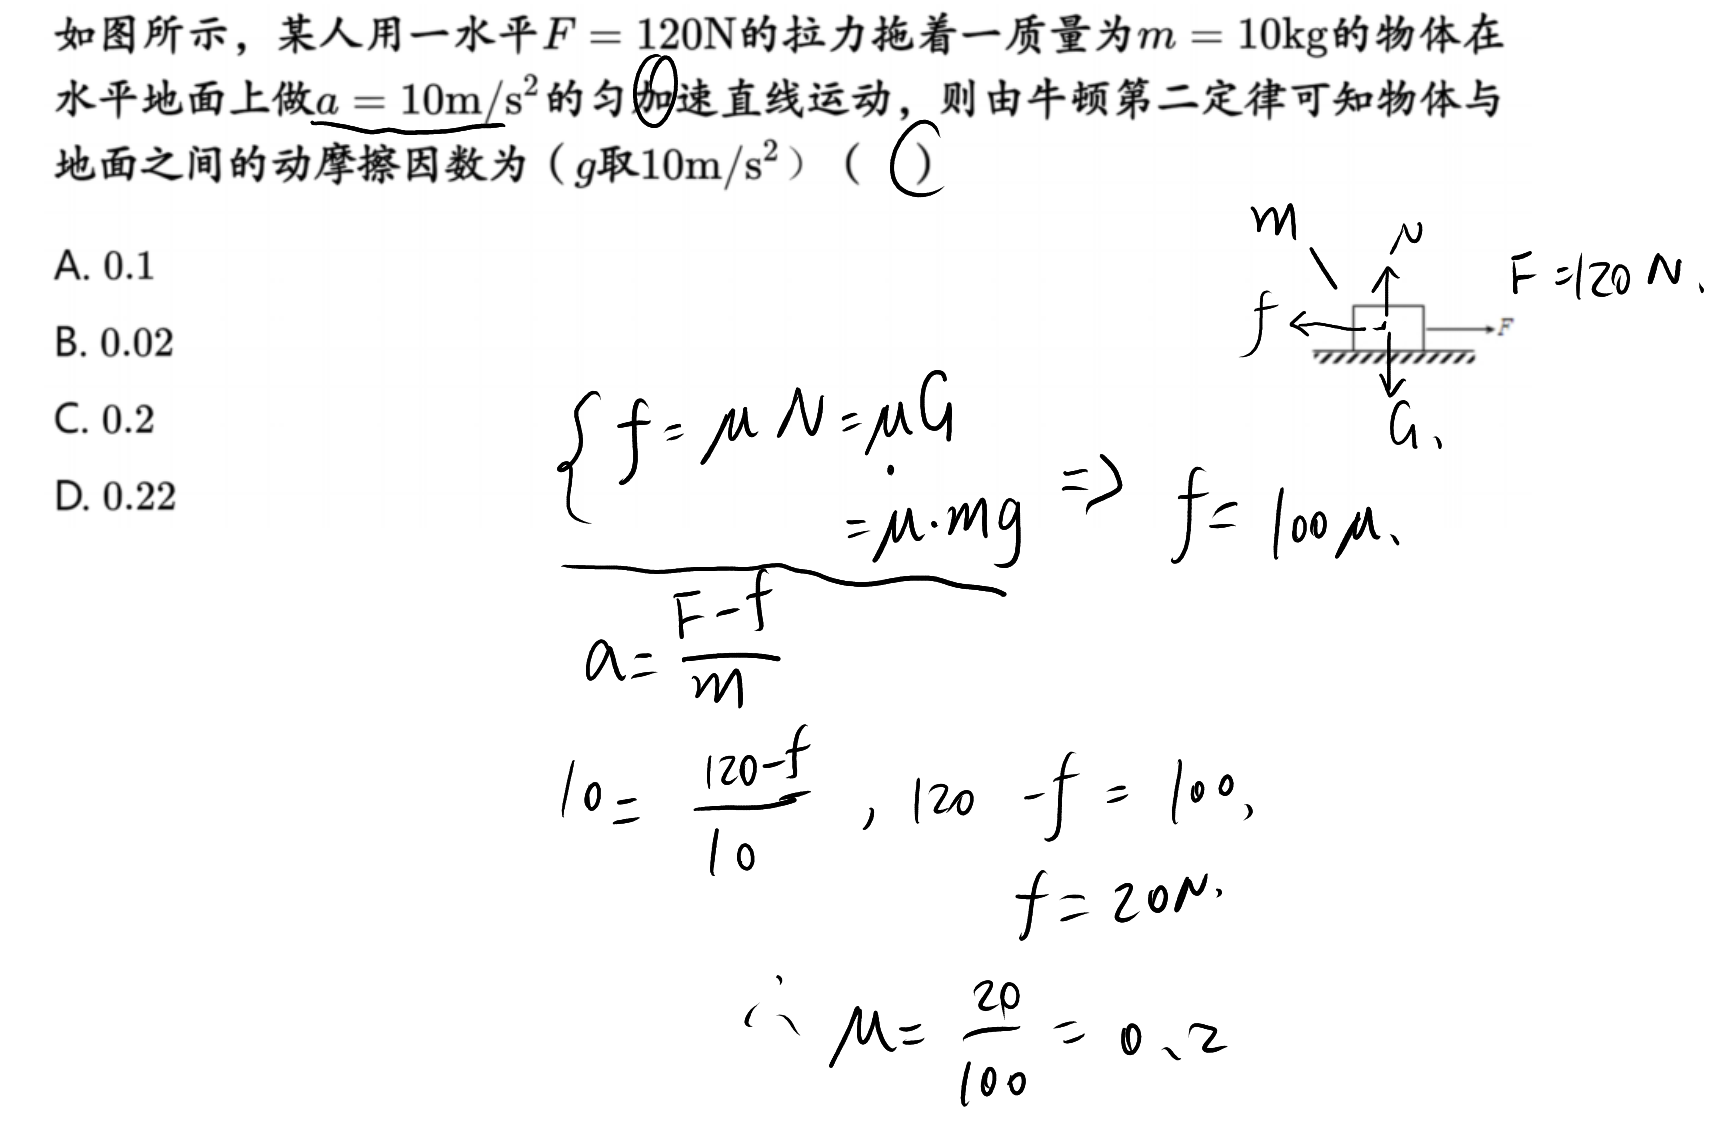 如图所示，某人用一水平F = 120N的拉力拖着一质量为m = 10kg的物体在
水平地面上做a = 10m/s²的匀加速直线运动，则由牛顿第二定律可知物体与
地面之间的动摩擦因数为（g取10m/s²）（ C ）
A. 0.1
B. 0.02
C. 0.2
D. 0.22
m
N
F = 120 N.
f
F
G.
{ f = μN = μG
= μ·mg ⇒ f = 100μ.
a = (F-f)/m
10 = (120-f)/10 , 120 - f = 100,
f = 20N.
∴ μ = 20/100 = 0.2